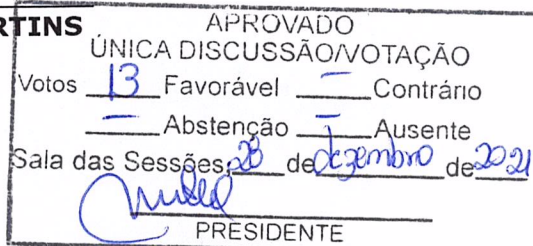 RTINS
APROVADO
ÚNICA DISCUSSÃO/VOTAÇÃO
Votos 13 Favorável — Contrário
— Abstenção — Ausente
Sala das Sessões, 28 de dezembro de 2021
PRESIDENTE